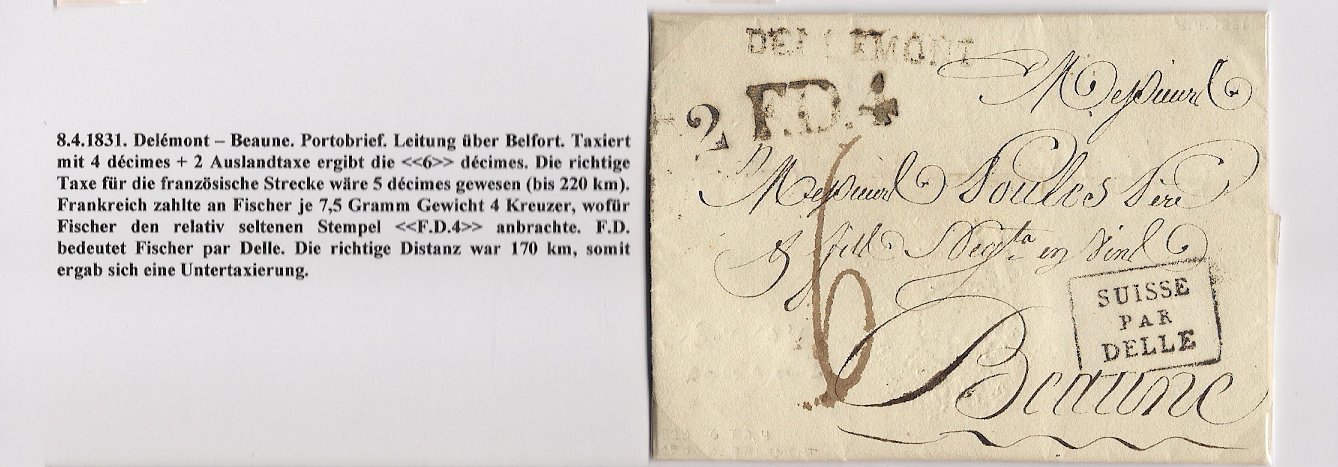 8.4.1831. Delémont – Beaune. Portobrief. Leitung über Belfort. Taxiert
mit 4 décimes + 2 Auslandtaxe ergibt die <<6>> décimes. Die richtige
Taxe für die französische Strecke wäre 5 décimes gewesen (bis 220 km).
Frankreich zahlte an Fischer je 7,5 Gramm Gewicht 4 Kreuzer, wofür
Fischer den relativ seltenen Stempel <<F.D.4>> anbrachte. F.D.
bedeutet Fischer par Delle. Die richtige Distanz war 170 km, somit
ergab sich eine Untertaxierung.
DELLEMONT
F.D.4
2
6
Messieurs
Messieurs
Père
& fils
Beaune
SUISSE
PAR
DELLE